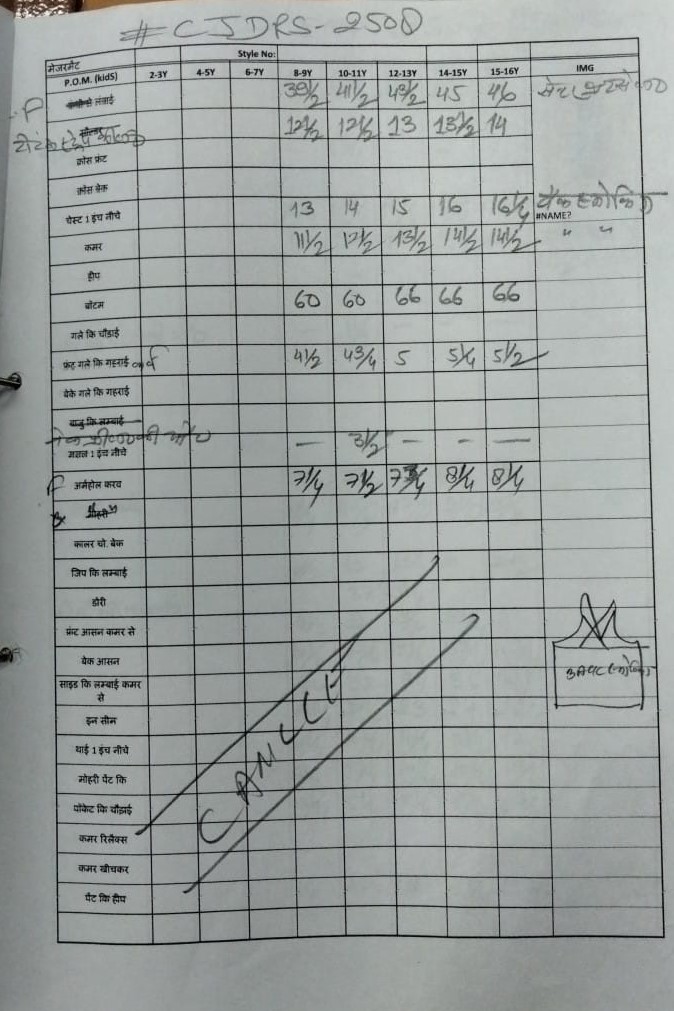 # CJDRS-2508
मेजरमेंट Style No:
P.O.M. (kidS) 2-3Y 4-5Y 6-7Y 8-9Y 10-11Y 12-13Y 14-15Y 15-16Y IMG
F लंबाई 39½ 41½ 43½ 45 46
12½ 12½ 13 13½ 14
क्रोस फ्रंट
क्रोस बेक
चेस्ट 1 इंच नीचे 13 14 15 16 #NAME?
कमर 11½ 12½ 13½ 14½ 14½ " "
हीप
बोटम 60 60 66 66 66
गले कि चौडाई
फ्रंट गले कि गहराई 4½ 4¾ 5 5¼ 5½
बेके गले कि गहराई
बाजु कि लम्बाई
मसल 1 इंच नीचे — 3½ — — —
F अर्महोल करव 7¼ 7½ 7¾ 8¼ 8¼
मोहरी
कालर चो. बेक
जिप कि लम्बाई
डोरी
फ्रंट आसन कमर से
बेक आसन
साइड कि लम्बाई कमर
से
इन सीन
थाई 1 इंच नीचे
मोहरी पेंट कि
पॉकेट कि चौड़ाई
कमर रिलैक्स
कमर खीचकर
पेंट कि हीप
CANCLE